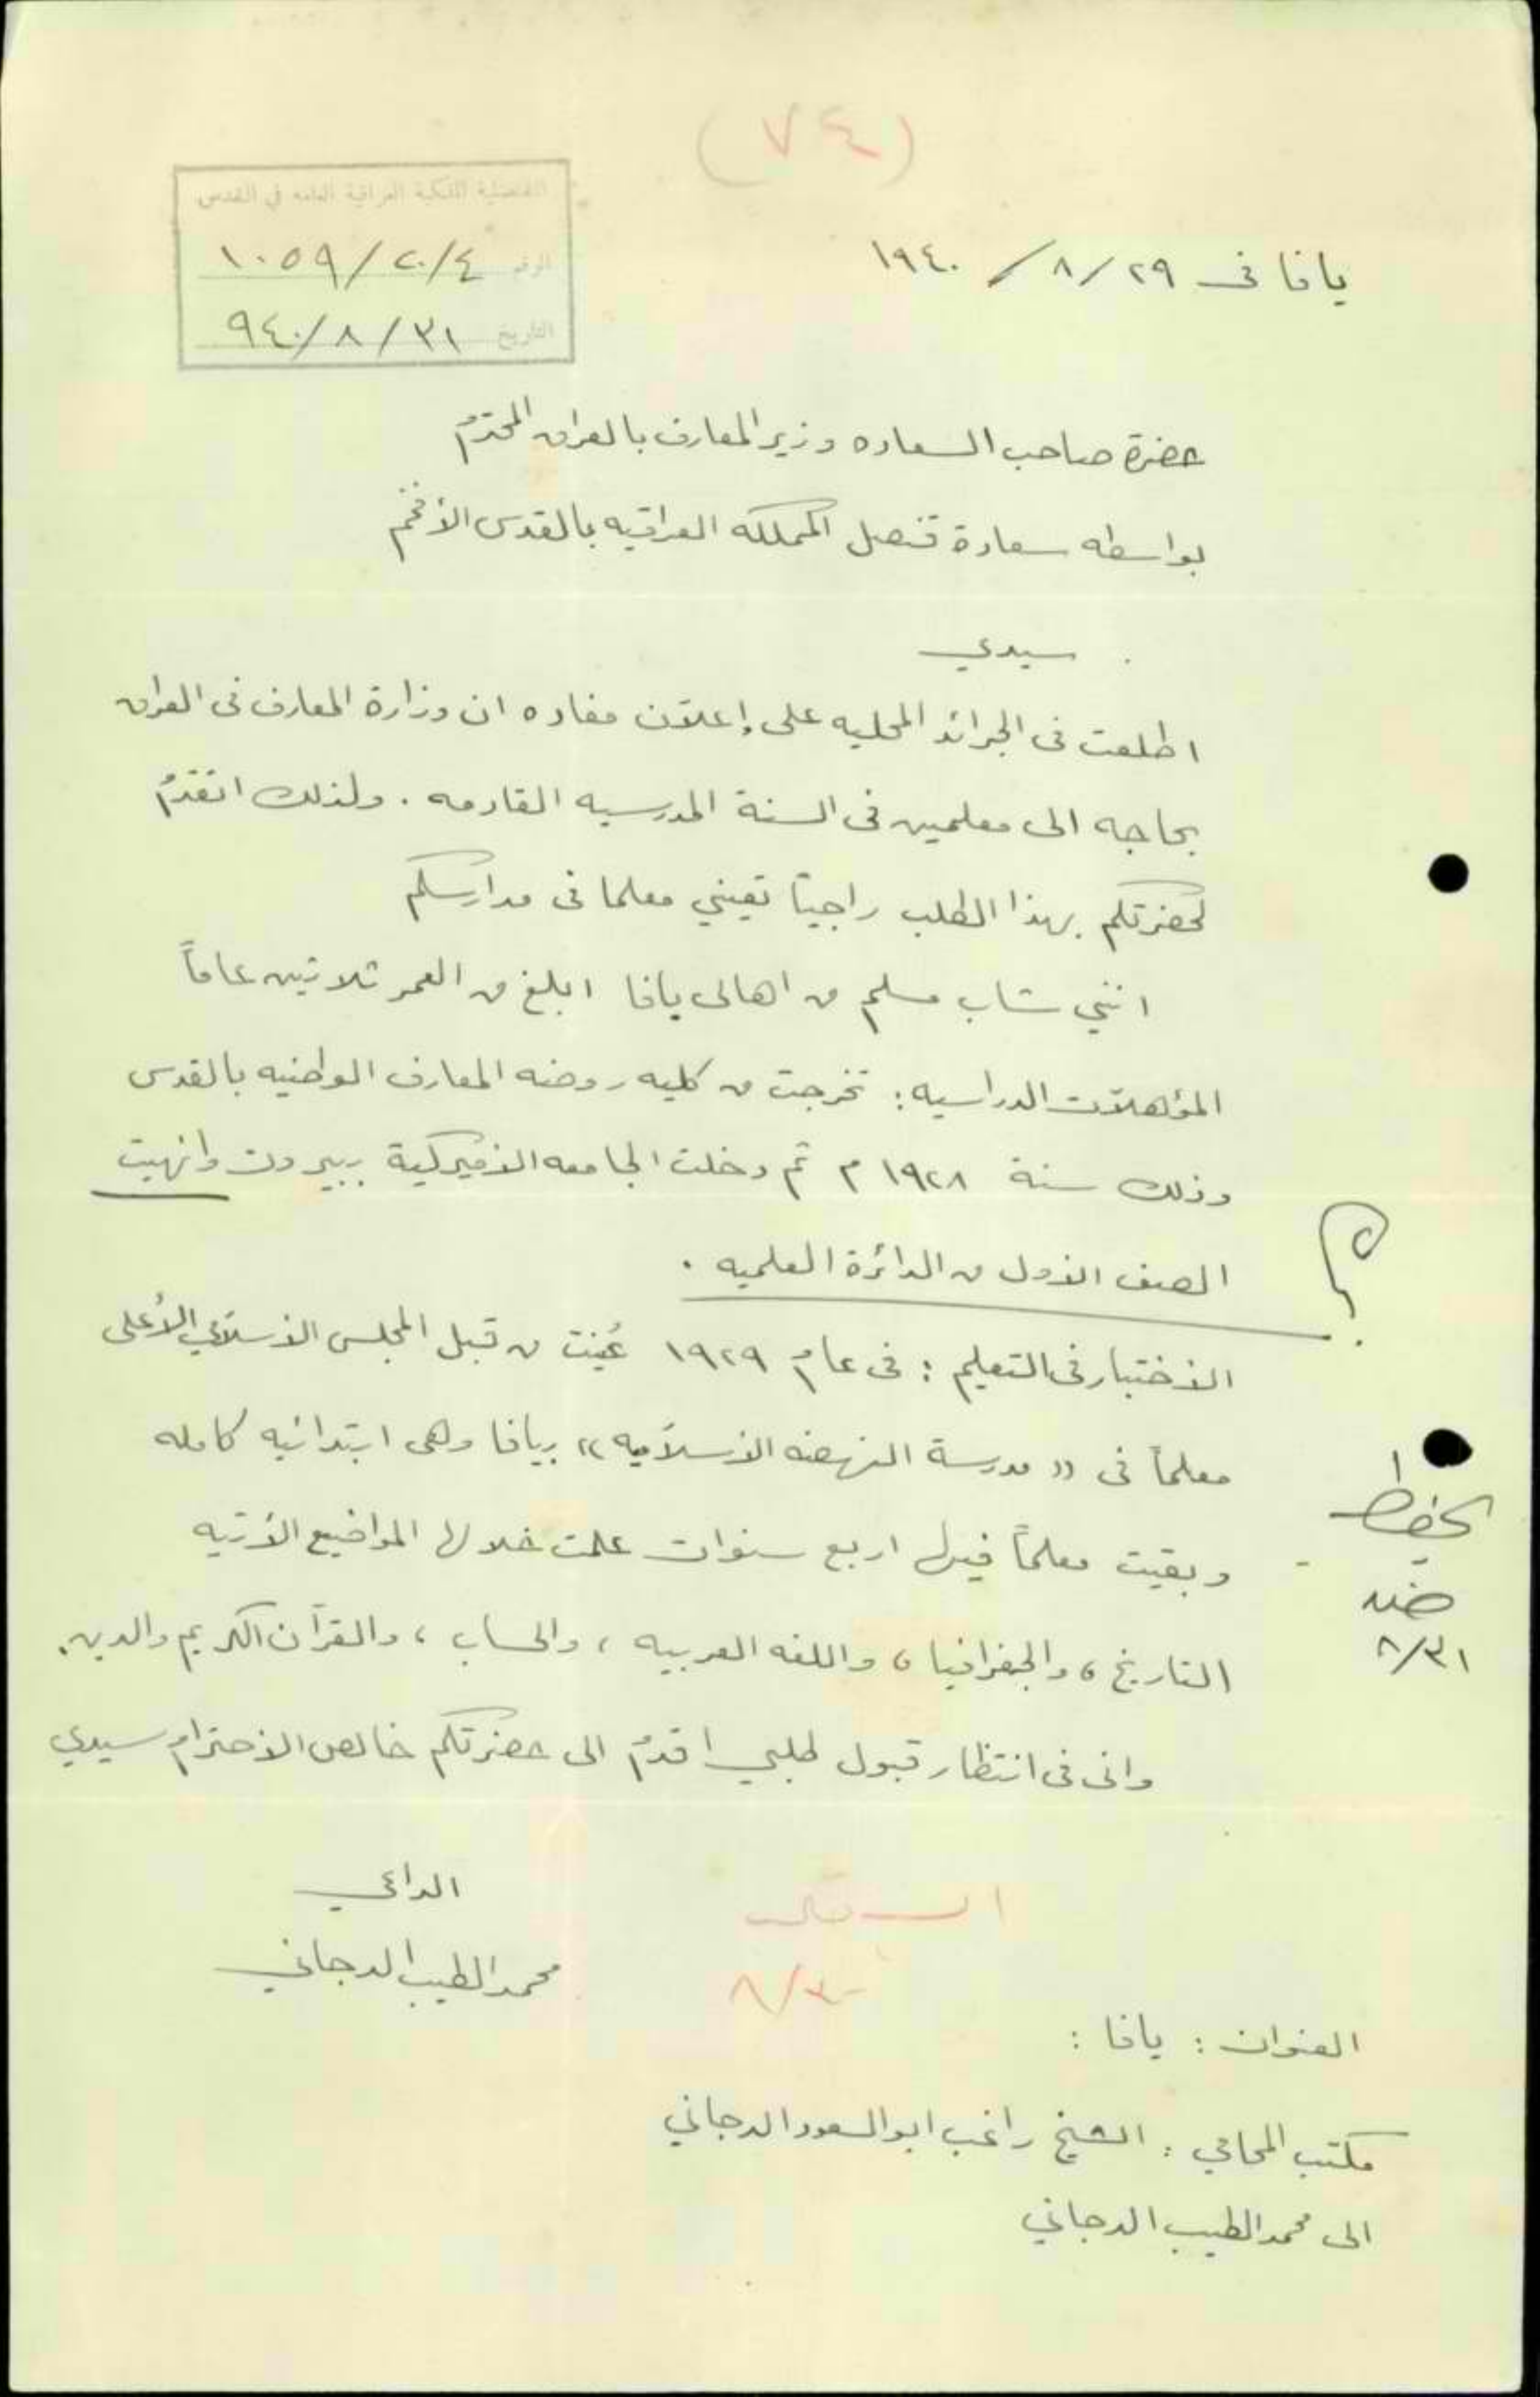 (٧٤)
القنصلية الملكية العراقية العامة في القدس
الرقم ١٠٥٩/٢٠/٤
التاريخ ٩٤٠/٨/٣١
يافا فى ٢٩/٨/١٩٤٠
حضرة صاحب السعاده وزير المعارف بالعراق المحترم
بواسطه سعادة قنصل المملكه العراقيه بالقدس الأفخم
سيدي
اطلعت فى الجرائد المحليه على إعلان مفاده ان وزارة المعارف فى العراق
بحاجه الى معلمين فى السنة المدرسيه القادمه . ولذلك اتقدم
لحضرتكم بهذا الطلب راجياً تعييني معلما فى مدارسكم
انني شاب مسلم من اهالى يافا ابلغ من العمر ثلاثين عاماً
المؤهلات الدراسيه : تخرجت من كليه روضه المعارف الوطنيه بالقدس
وذلك سنة ١٩٢٨ م ثم دخلت الجامعه الاميركية ببيروت وانهيت
الصف الاول من الدائرة العلميه .
؟
الاختبار فى التعليم : فى عام ١٩٢٩ عُينت من قبل المجلس الاسلامي الأعلى
معلماً فى « مدرسة النهضه الاسلاميه » بيافا وهى ابتدائيه كامله
وبقيت معلماً فيها اربع سنوات علمت خلالها المواضيع الآتيه
التاريخ ، والجغرافيا ، واللغه العربيه ، والحساب ، والقرآن الكريم والدين .
يحفظ
٨/٣١
وانى فى انتظار قبول طلبي اقدم الى حضرتكم خالص الاحترام سيدي
الداعي
محمد الطيب الدجاني
٨/٣٠
العنوان : يافا :
مكتب المحامي : الشيخ راغب ابو السعود الدجاني
الى محمد الطيب الدجاني